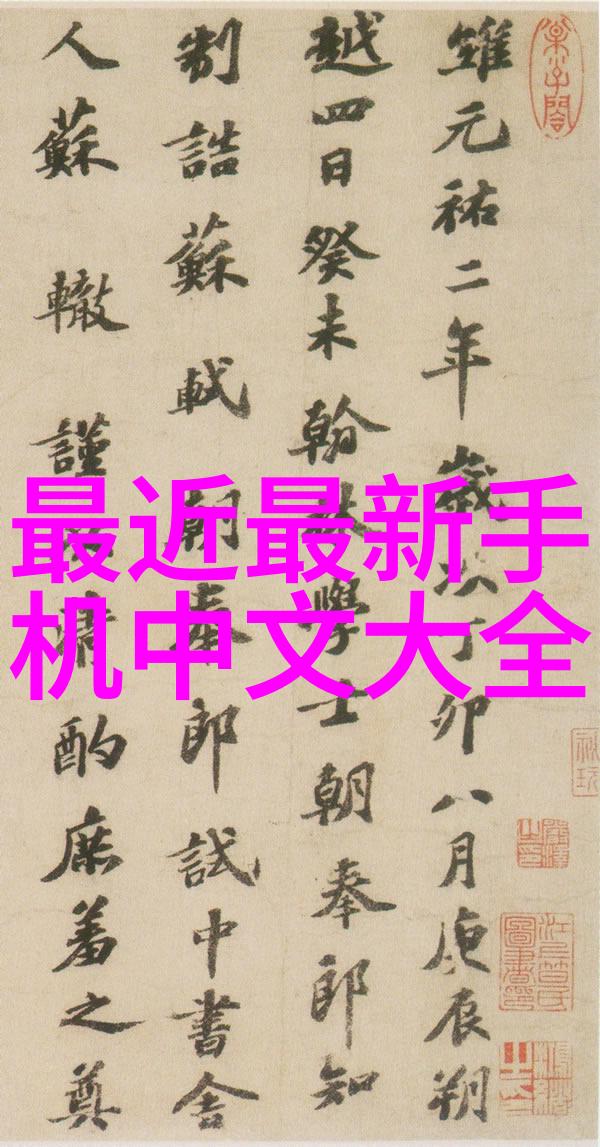 維元祐二年歲次丁卯八月庚辰朔
越四日癸未翰林學士朝奉郎知
制誥蘇軾朝奉郎試中書舍
人蘇轍謹以清酌庶羞之奠
最近最新手
机中文大全